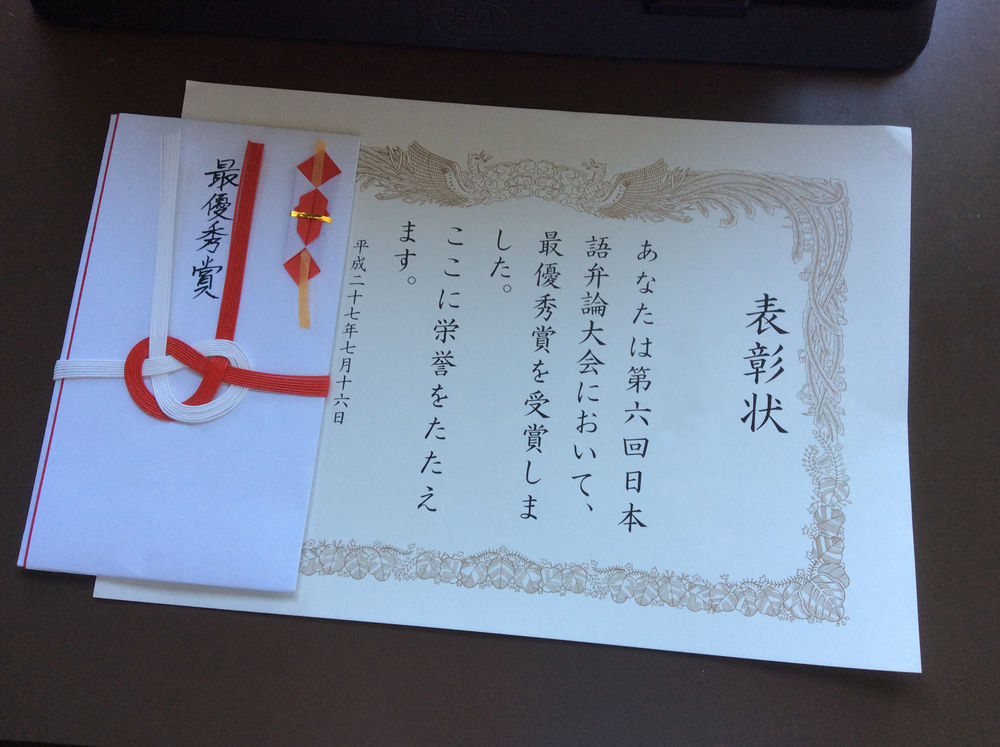 表彰状
あなたは第六回日本
語弁論大会において、
最優秀賞を受賞しま
した。
ここに栄誉をたたえ
ます。
平成二十七年七月十六日
最優秀賞